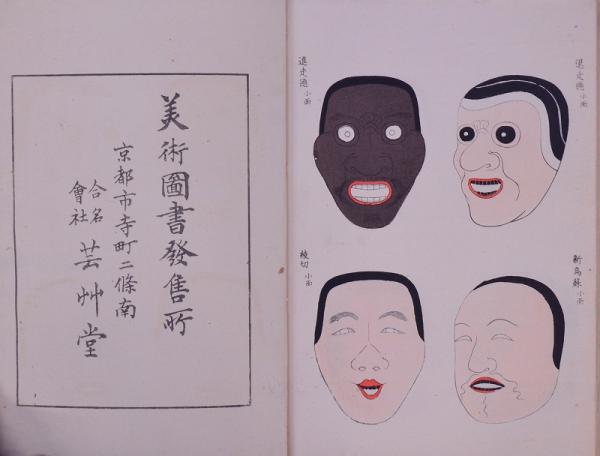 退走德 小面
進走德 小面
新鳥蘇 小面
綾切 小面
美術圖書發售所
京都市寺町二條南
合名
會社
芸艸堂